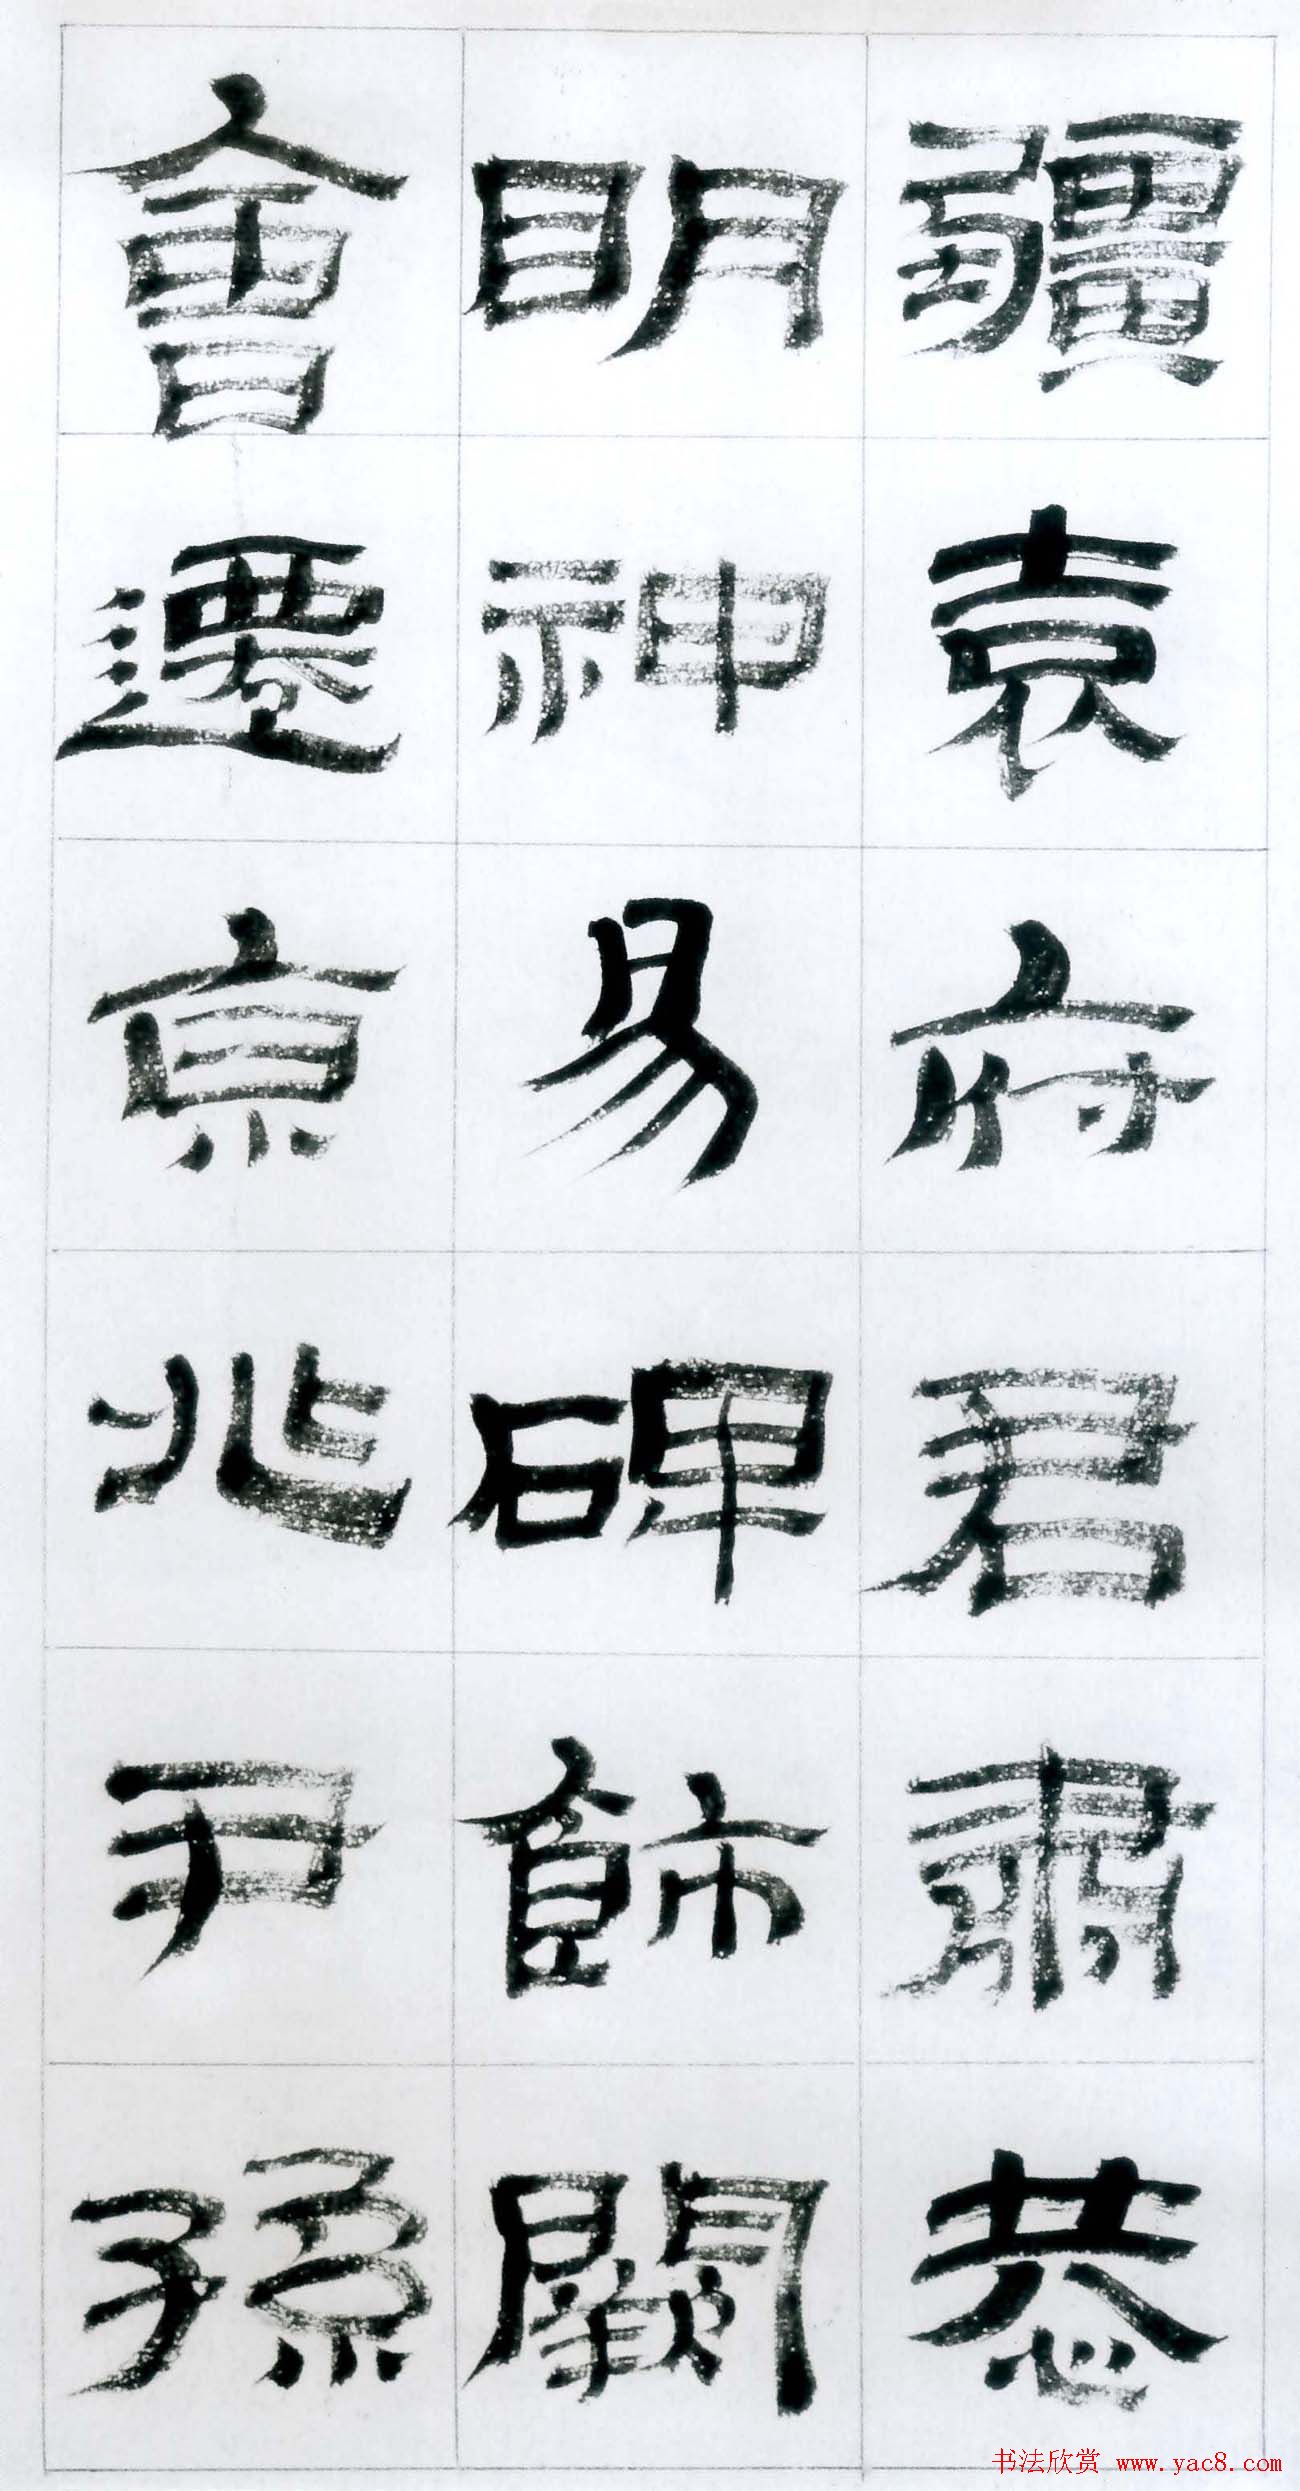 疆袁府君肅恭
明神易碑飾闕
會遷京兆尹孫
书法欣赏 www.yac8.com